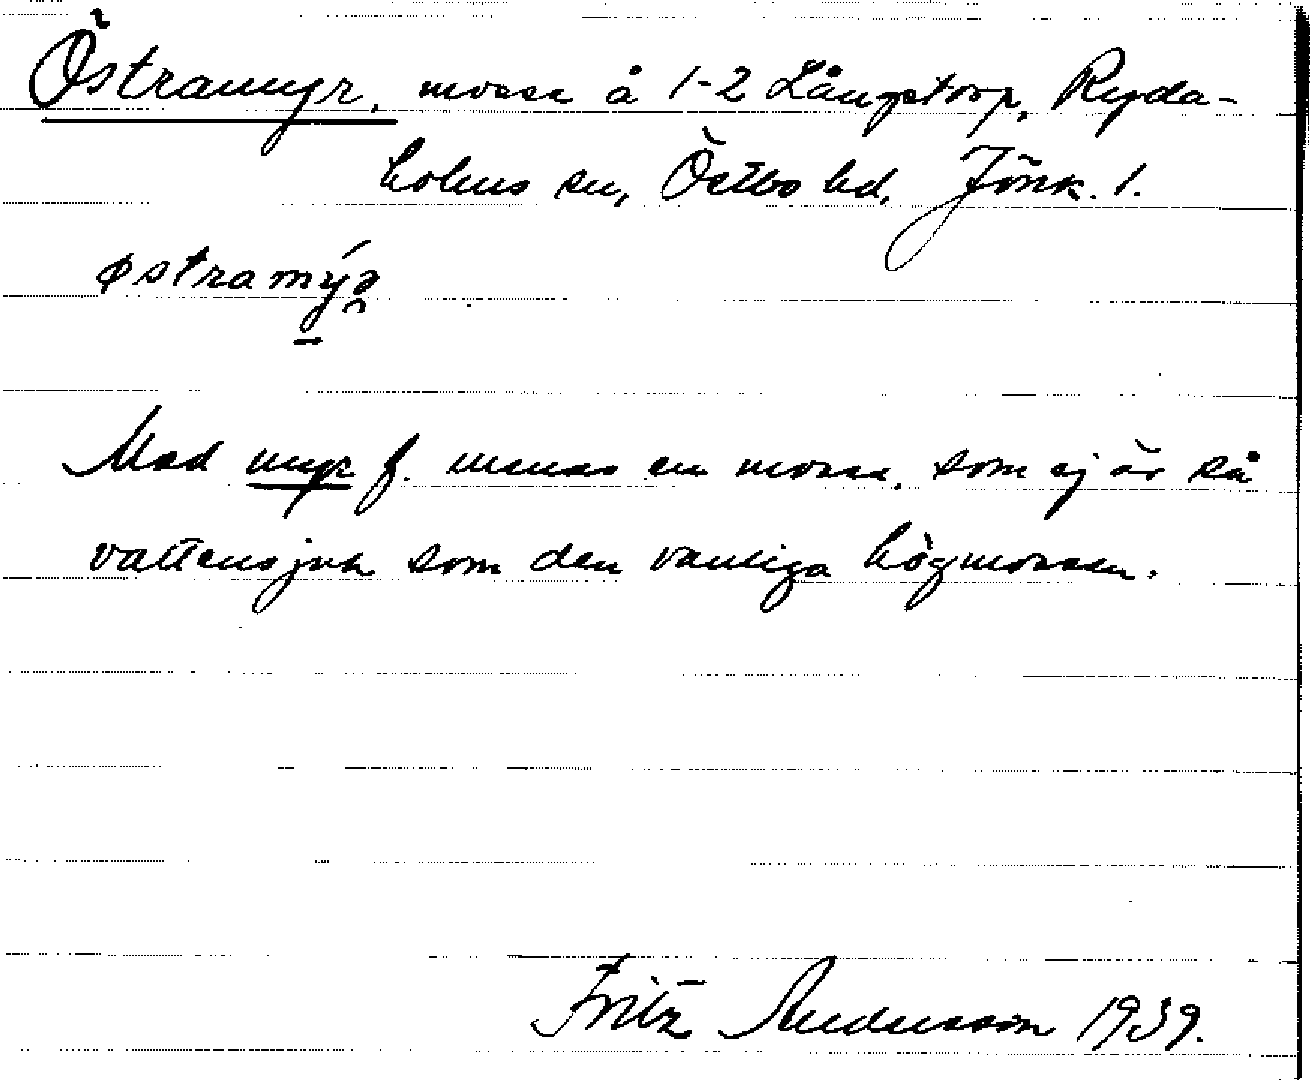 Östramyr, mosse å 1-2 Långstorp, Ryda-
holms sn, Östbo hd, Jönk. l.
østramýə̯
Med myr f. menas en mosse, som ej är så
vattensjuk som den vanliga högmossen.
Fritz Andersson 1939.